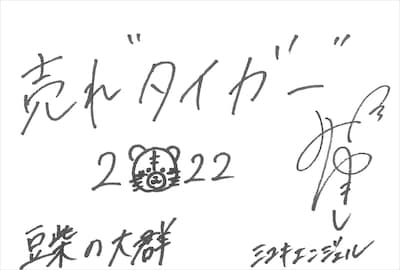 売れ"タイガー"
2022
豆柴の大群
ミユキエンジェル